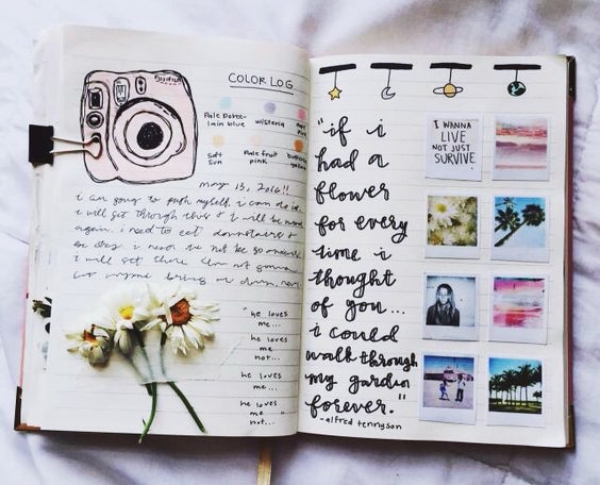 COLOR LOG
Pale Porce-
lain blue
wisteria
Soft
Sun
Pale fruit
pink
may 13, 2016!!
i am going to push myself. i can do it.
i will get through this & i will be
again. i need to eat downstairs &
i will get there
"he loves
me...
he loves
me
not...
he loves
me...
he loves
me "
not...
"if i
had a
flower
for every
time i
thought
of you...
i could
walk through
my garden
forever."
-alfred tennyson
I WANNA
LIVE
NOT JUST
SURVIVE